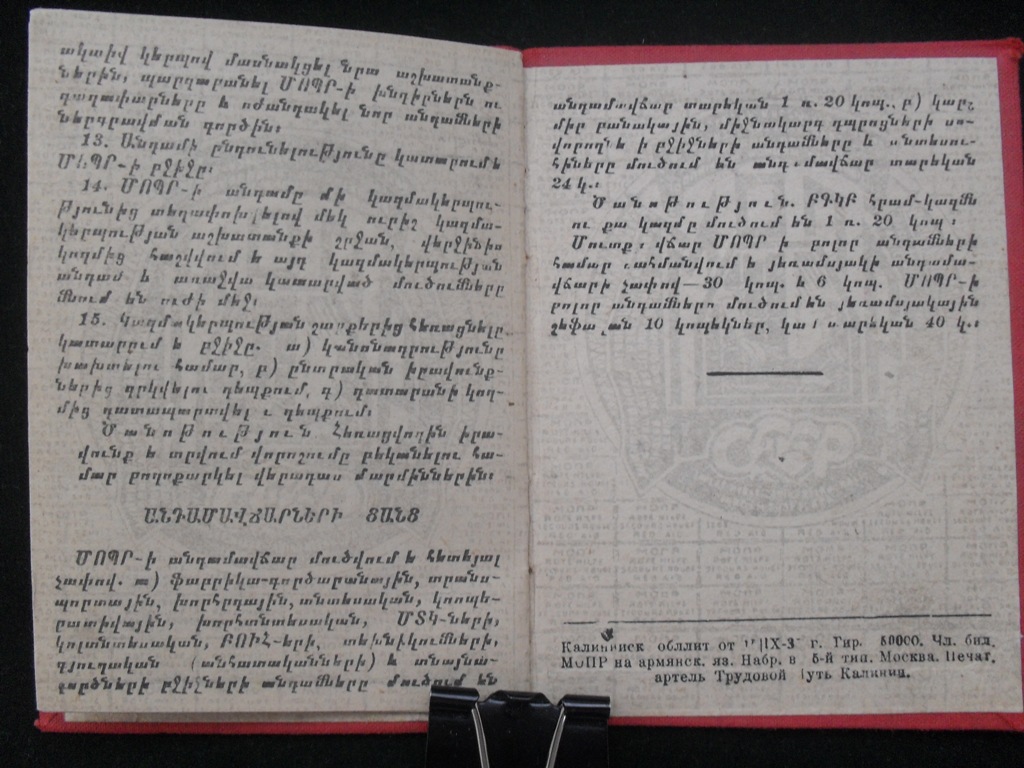 ակտիվ կերպով մասնակցել նրա աշխատանք-
ներին, պարզաբանել ՄՈՊՐ-ի խնդիրներն ու
գաղափարները և ոժանդակել նոր անդամների
ներգրավման գործին:
13. Անդամի ընդունելությունը կատարում է
ՄՈՊՐ-ի բջիջը:
14. ՄՈՊՐ-ի անդամը մի կազմակերպու-
թյունից տեղափոխվելով մեկ ուրիշ կազմա-
կերպության աշխատանքի շրջան, վերջինիս
կողմից հաշվվում է այդ կազմակերպության
անդամ և առաջվա կատարված մուծումները
մնում են ուժի մեջ:
15. Կազմակերպության շարքերից հեռացնելը
կատարվում է բջիջը. ա) կանոնադրությունը
խախտելու համար, բ) ընտրական իրավունք-
ներից զրկվելու դեպքում, գ) դատարանի կող-
մից դատապարտվելու դեպքում:
Ծանոթություն Հեռացվողին իրա-
վունք է տրվում վորոշումը բեկանելու հա-
մար բողոքարկել վերադաս մարմիններին:
ԱՆԴԱՄԱՎՃԱՐՆԵՐԻ ՑԱՆՑ
ՄՈՊՐ-ի անդամավճար մուծվում է հետևյալ
չափով. ա) Ֆաբրիկա-գործարանային, տրանս-
պորտային, խորհրդային, տնտեսական, կոոպե-
րատիվային, խորհտնտեսական, ՄՏԿ-ների,
կոլտնտեսական, ԲՈՒՀ-երի, տեխնիկումների,
գյուղական (անհատականների) և տնայնա-
գործների բջիջների անդամները մուծում են
անդամավճար տարեկան 1 ռ. 20 կոպ., բ) կար-
միր բանակային, միջնակարգ դպրոցների սո-
վորողների բջիջների անդամները և տնտեսու-
հիները մուծում են անդամավճար տարեկան
24 կ.:
Ծանոթություն. ԲԳԿԲ հրամ-կազմն
ու քա կազմը մուծում են 1 ռ. 20 կոպ:
Մուտքի վճար ՄՈՊՐ ի բոլոր անդամների
համար սահմանվում է յեռամսյակի անդամա-
վճարի չափով—30 կոպ. և 6 կոպ. ՄՈՊՐ-ի
բոլոր անդամները մուծում են յեռամսյակային
10 կոպեկներ, կամ տարեկան 40 կ.:
Калининск обллит от г. Тир. 50000. Чл. бил.
МОПР на армянск. яз. Набр. в 5-й тип. Москва. Печат.
артель Трудовой Путь Калинин.